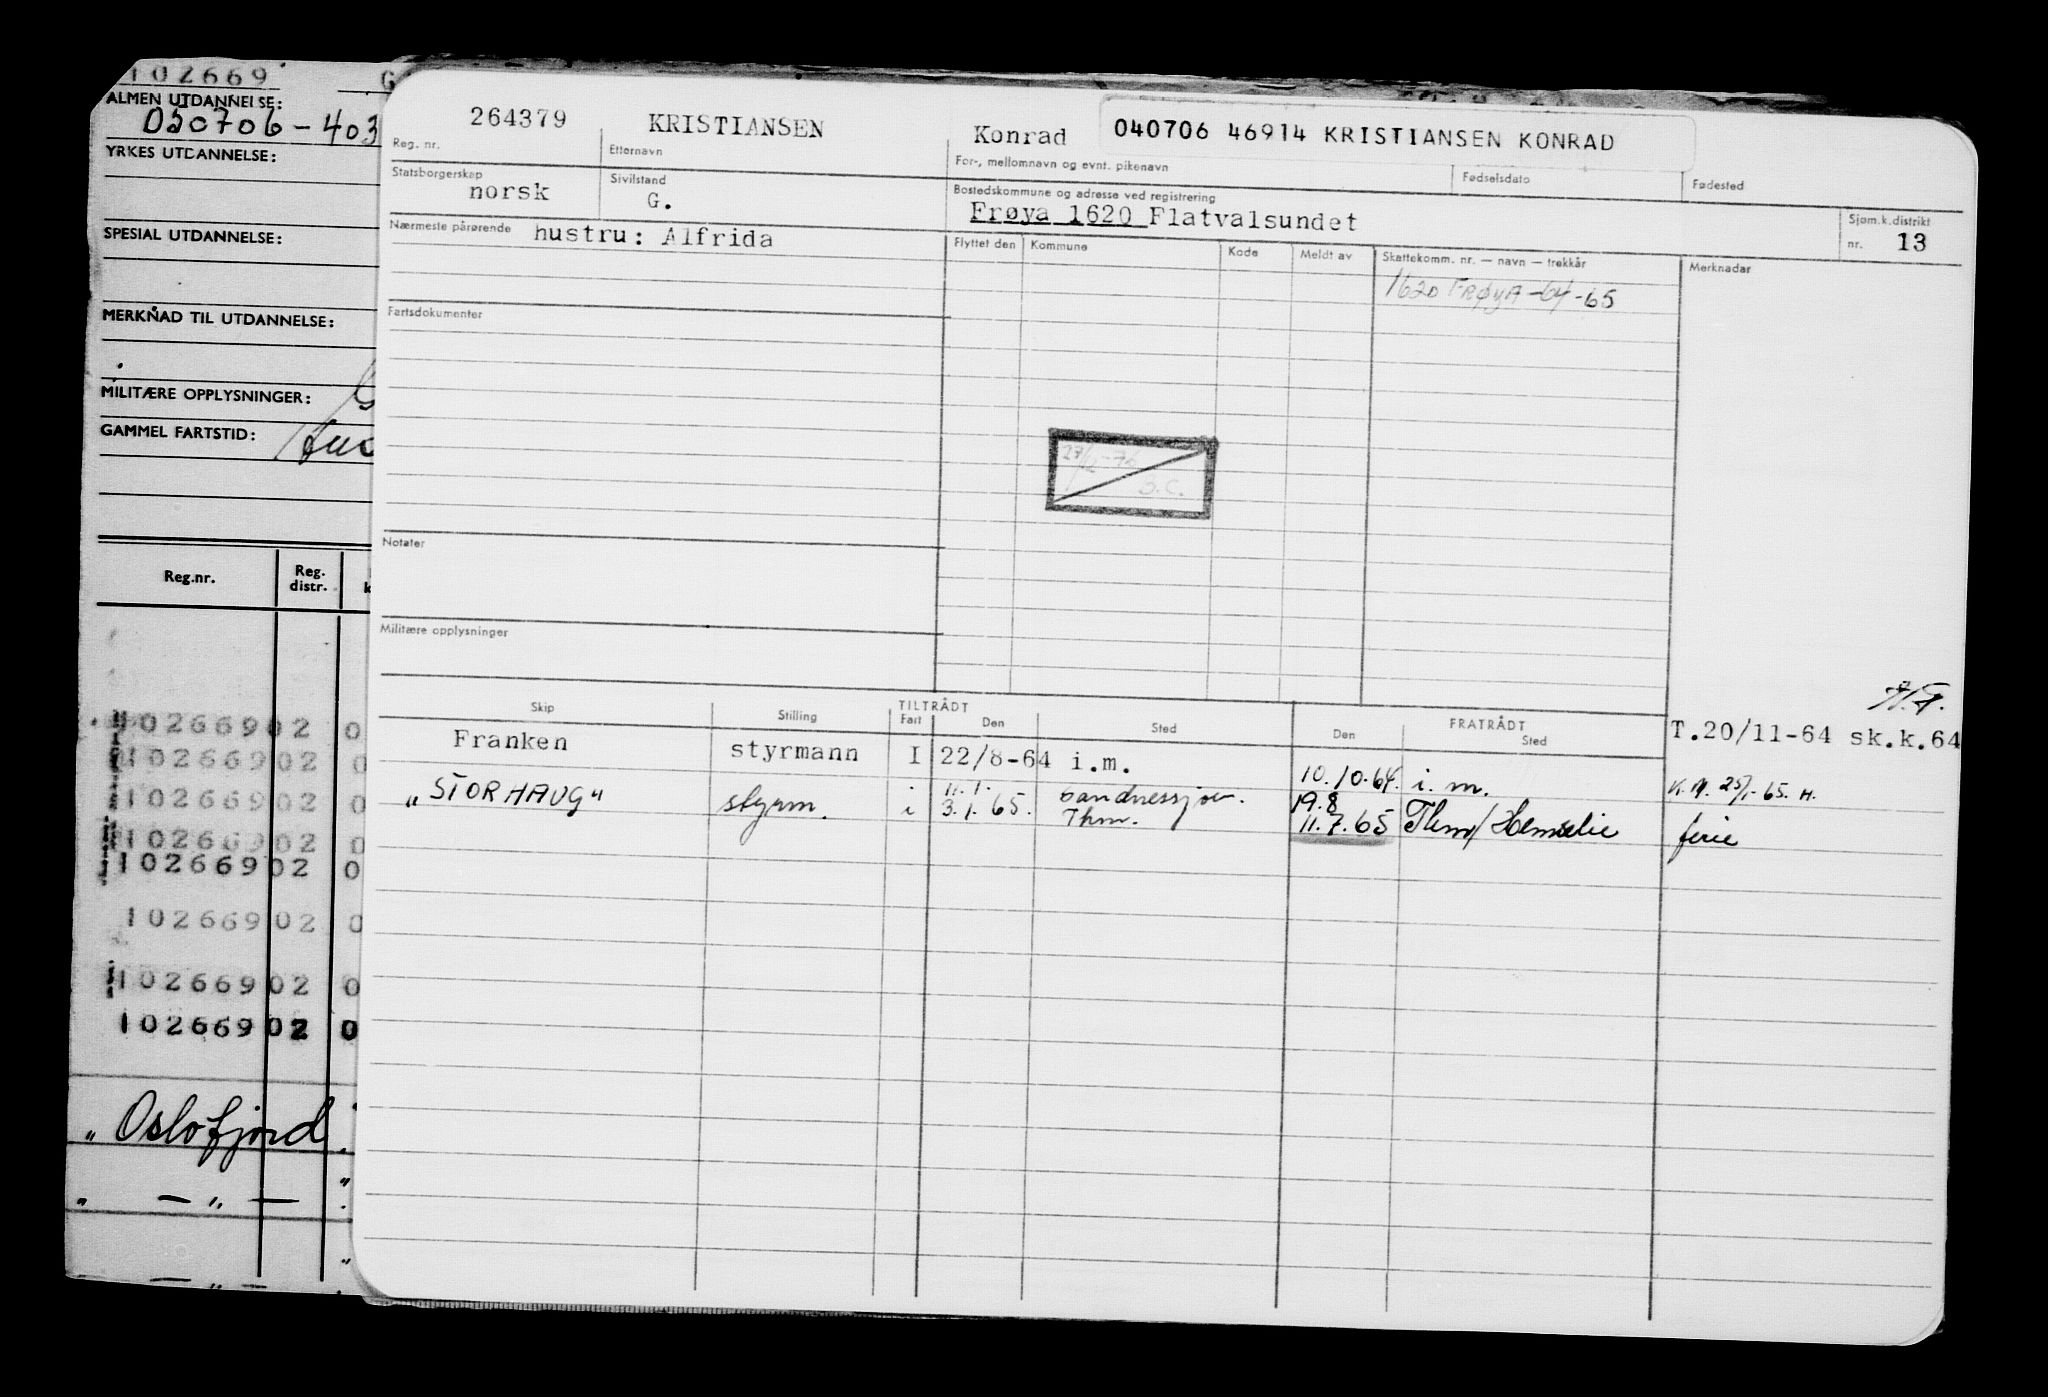 102669
ALMEN UTDANNELSE:
050706-403
YRKES UTDANNELSE:
SPESIAL UTDANNELSE:
MERKNAD TIL UTDANNELSE:
MILITÆRE OPPLYSNINGER:
GAMMEL FARTSTID:
Reg.nr.
Reg. distr.
10266902 0
10266902 0
10266902 0
10266902 0
10266902 0
10266902 0
10266902 0
10266902 0
„ Oslofjord
„ — „ —
— „ —
264379 KRISTIANSEN Konrad 040706 46914 KRISTIANSEN KONRAD
Reg. nr. Etternavn For-, mellomnavn og evnt. pikenavn Fødselsdato Fødested
Statsborgerskap Sivilstand Bostedskommune og adresse ved registrering Sjøm.k.distrikt
norsk G. Frøya 1620 Flatvalsundet nr. 13
Nærmeste pårørende hustru: Alfrida Flyttet den Kommune Kode Meldt av Skattekomm. nr. — navn — trekkår Merknader
1620 FRØYA -64-65
Fartsdokumenter
Notater
Militære opplysninger
TILTRÅDT FRATRÅDT
Skip Stilling Fart Den Sted Den Sted
T.20/11-64 sk.k.64
Franken styrmann I 22/8-64 i.m. 10.10.64. i.m.
11.1. Sandnessjøen. 19.8
„STORHAUG" styrm. i 3.1.65. Thm. 11.7.65 ferie